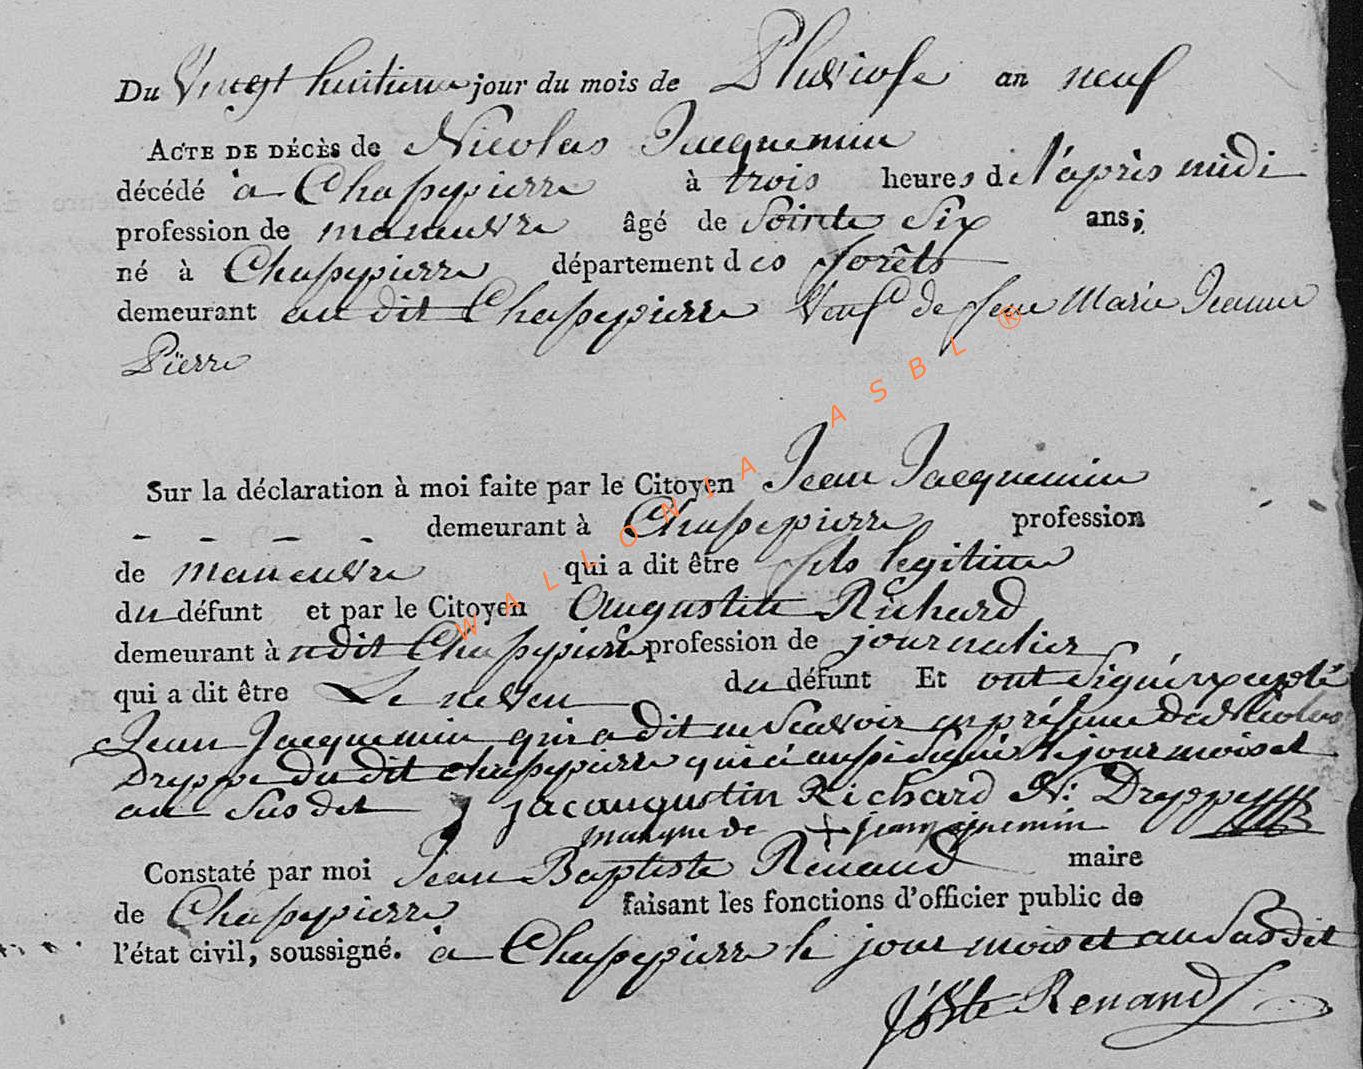 Du Vingt huitieme jour du mois de Pluviose an neuf
ACTE DE DÉCÈS de Nicolas Jacquemin
décédé a Chassepierre à trois heures de l'après midi
profession de maneuvre âgé de Sointe Six ans;
né à Chassepierre département des forêts
demeurant au dit Chassepierre Veuf de feue Marie Jeanne
Pierre
Sur la déclaration à moi faite par le Citoyen Jean Jacquemin
demeurant à Chassepierre profession
de maneuvre qui a dit être fils legitime
du défunt et par le Citoyen Augustin Richard
demeurant à udit Chassepierre profession de journalier
qui a dit être Le neveu du défunt Et ont Signé excepté
Jean Jacquemin qui a dit ne Scavoir en présence de Nicolas
Dreppe du dit chassepierre qui a aussi Signé le jour mois et
an Sus dit J jacaugustin Richard N: Dreppe
marque de + jean jquemin
Constaté par moi Jean Baptiste Renaud maire
de Chassepierre faisant les fonctions d'officier public de
l'état civil, soussigné. a Chassepierre le jour mois et an Sus dit
JBte Renaud
WALLONIA ASBL ®